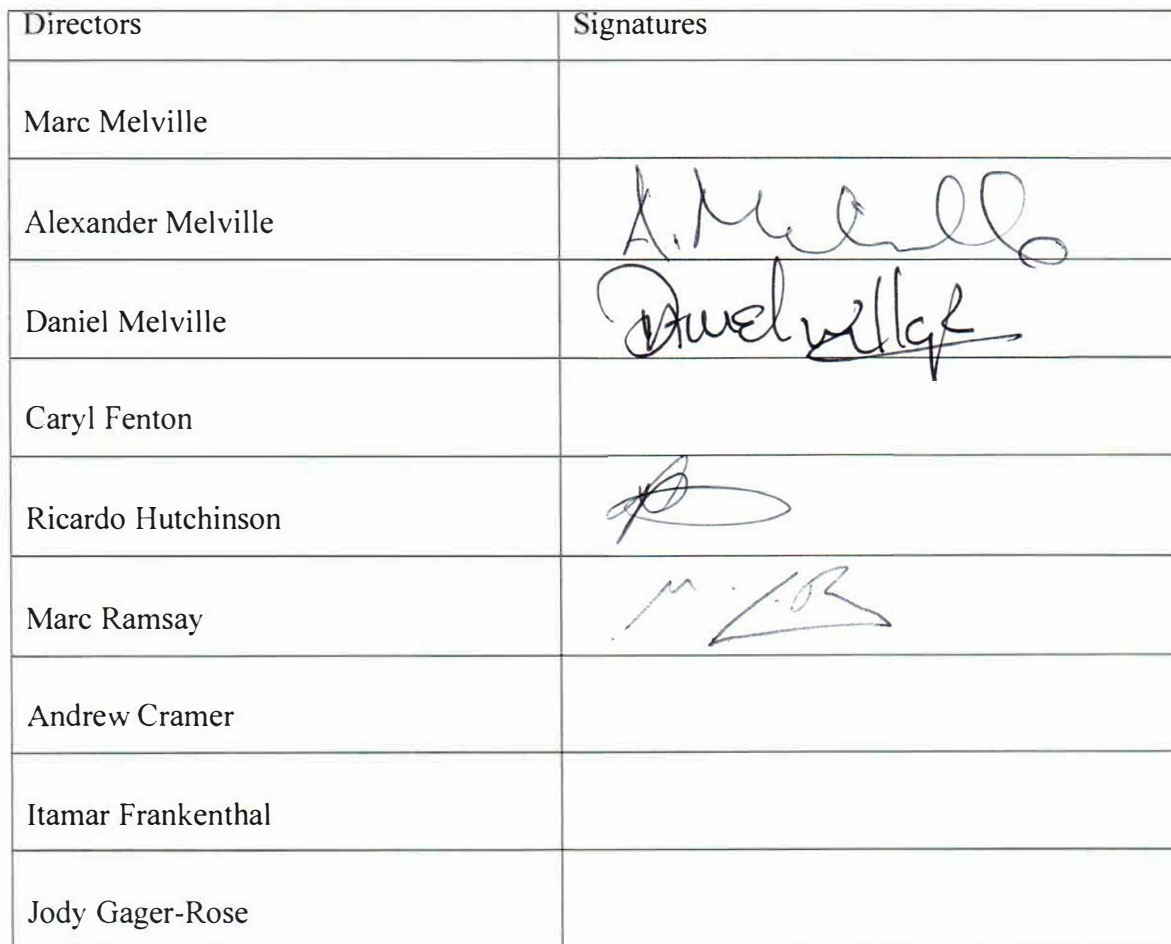 Directors Signatures
Marc Melville
Alexander Melville A. Melville
Daniel Melville
Caryl Fenton
Ricardo Hutchinson
Marc Ramsay
Andrew Cramer
Itamar Frankenthal
Jody Gager-Rose